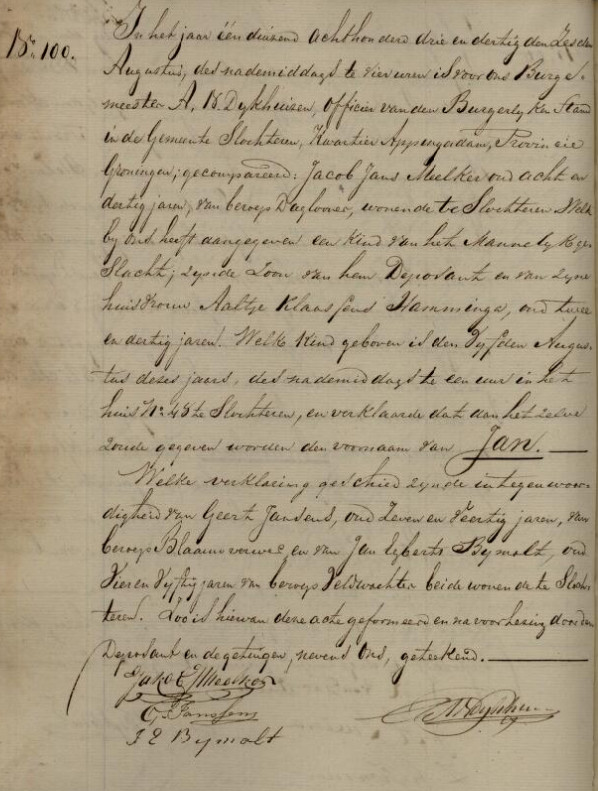 N. 100.
In het jaar één duizend achthonderd drie en dertig den Zesden
Augustus, des nademiddags te vier uren is voor ons Burge-
meester A. N. Dykhuizen, officier van den Burgerlyken Stand
in de Gemeente Slochteren, Kwartier Appingadam, Provincie
Groningen; gecompareerd: Jacob Jans Meelker oud acht en
dertig jaren, van beroep Dagloner, wonende te Slochteren Welke
by ons heeft aangegeven een kind van het Mannelyk ge-
Slacht; zynde Zoon van hem Deposant en van zyne
huisvrouw Aaltje Klaassens Hamminga, oud twee
en dertig jaren. Welk Kind geboren is den Vyfden Augus-
tus dezes jaars, des nademiddags te een uur in het
huis No. 48 te Slochteren, en verklaarde dat aan hetzelve
zoude gegeven worden den voornaam van Jan.
Welke verklaring geschied zynde in tegenwoor-
digheid van Geert Jansens, oud Zeven en Veertig jaren, van
beroep Blaauwverwer, en van Jan Egberts Bymolt, oud
Vier en Vyftig jaren van beroep Veldwachter beide wonende te Sloch-
teren. Zoo is hiervan deze acte geformeerd en na voorlezing door den
Deposant en de getuigen, nevens ons, geteekend.
Jakob J Meelker
G. Janssens
J E Bymolt